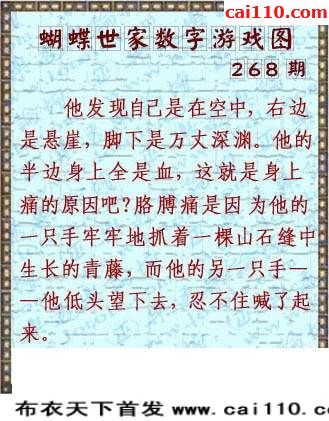 cai110.com
蝴蝶世家数字游戏图
268期
他发现自己是在空中，右边
是悬崖，脚下是万丈深渊。他的
半边身上全是血，这就是身上
痛的原因吧?胳膊痛是因为他的
一只手牢牢地抓着一棵山石缝中
生长的青藤，而他的另一只手—
—他低头望下去，忍不住喊了起
来。
布衣天下首发 www.cai110.c